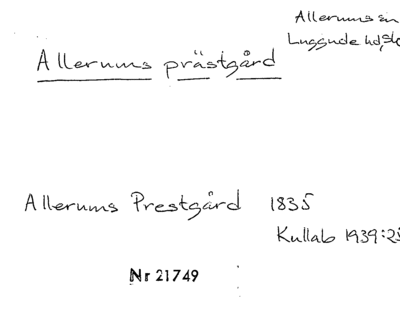 Allerums sn
Luggude hd, Sk
Allerums prästgård
Allerums Prestgård 1835
Kullab 1939:25
Nr 21749